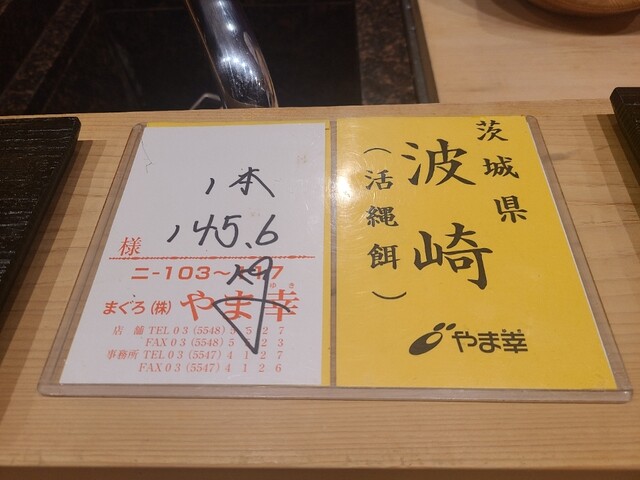 1本
145.6
様
ニ-103~117
まぐろ(株)やま幸
ゆき
店舗 TEL 03 (5548) 5527
FAX 03 (5548) 5 23
事務所 TEL 03 (5547) 4127
FAX 03 (5547) 4126
茨城県
波崎
(活縄餌)
やま幸